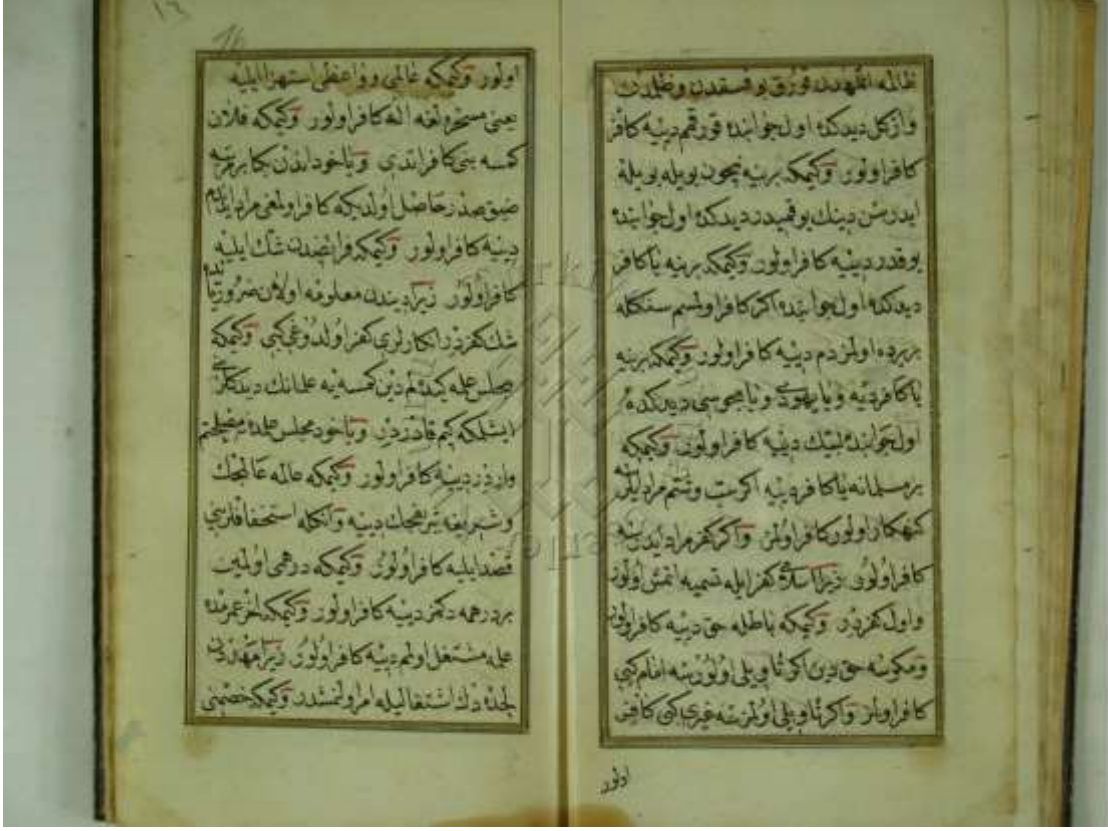 ظالمه اللهدن قورق بو فسقدن وظلمدن
واز كل ديدكده اول جوابنده قورقمم ديسه كافر
كافر اولور وكيمكه برينه نيچون بويله بويله
ايدرسن دينك يوقميدر ديدكده اول جوابنده
يوقدر ديسه كافر اولور وكيمكه برينه يا كافر
ديدكده اول جوابنده اكر كافر اولمسم سنكله
بر يرده اولمزدم ديسه كافر اولور وكيمكه برينه
يا كافر ديسه ويا يهودى ويا مجوسى ديدكده
اول جوابنده لبيك ديسه كافر اولور وكيمكه
بر مسلمانه يا كافر ديسه اكر سب وشتم مراد
كنهكار اولور كافر اولمز واكر كفر مراد ايدرسه
كافر اولور زيرا اسلامى كفر ايله تسميه اتمش اولور
واول كفردر وكيمكه باطله حق ديسه كافر اولور
ومكوسه حق دين اكر تاويلى اولورسه امام كبى
كافر اولمز واكر تاويلى اولمزسه غيرى كبى كافر
اولور
١٦
16
اولور وكيمكه عالمى وواعظى استهزا ايليه
يعنى مسخره لغه اله كافر اولور وكيمكه فلان
كمسه بنى كافر اتدى ويا خود اندن بكا بر مرتبه
ضيق صدر حاصل اولديكه كافر اولمغى مراد ايلدم
ديسه كافر اولور وكيمكه فرائضدن شك ايليه
كافر اولور زيرا ديندن معلومه اولان ضروريات
شك كفردر انكارلرى كفر اولدوغى كبى وكيمكه
مجلس علمه كيده لم دين كمسه يه علمانك ديدكلرى
ايشلمكه كيم قادردر ويا خود مجلس علمده نه مصلحتم
واردر ديسه كافر اولور وكيمكه عالمه عالمجك
وشريفه شريفجك ديسه وانكله استخفافلرينى
قصد ايليه كافر اولور وكيمكه درهمى اولميان
بر درهمه دكمز ديسه كافر اولور وكيمكه آخر عمرمده
علمه مشتغل اولم ديسه كافر اولور زيرا مهددن
لحده دك اشتغاليله امر اولنمشدر وكيمكه خصمنى